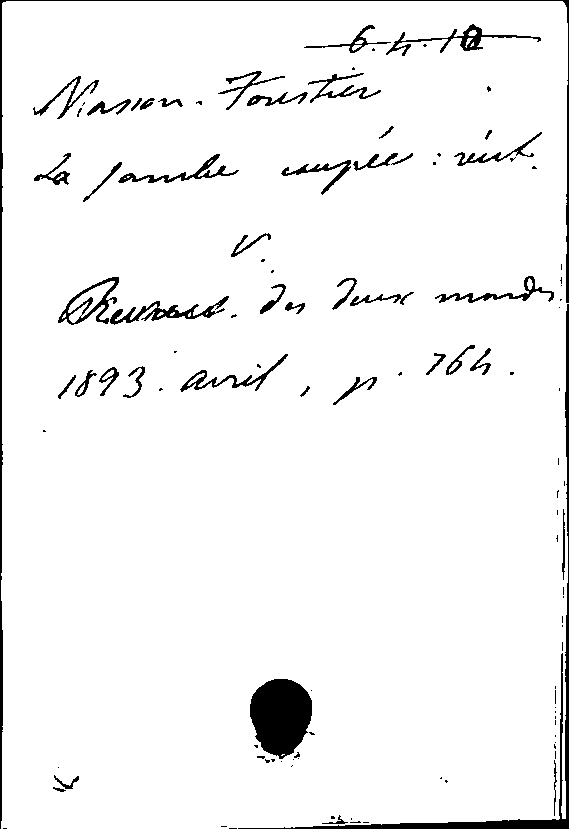 6.4.10
Masson-Forestier
La Jambe coupée : récit.
V.
Revue des deux mondes
1893. avril, p. 764.